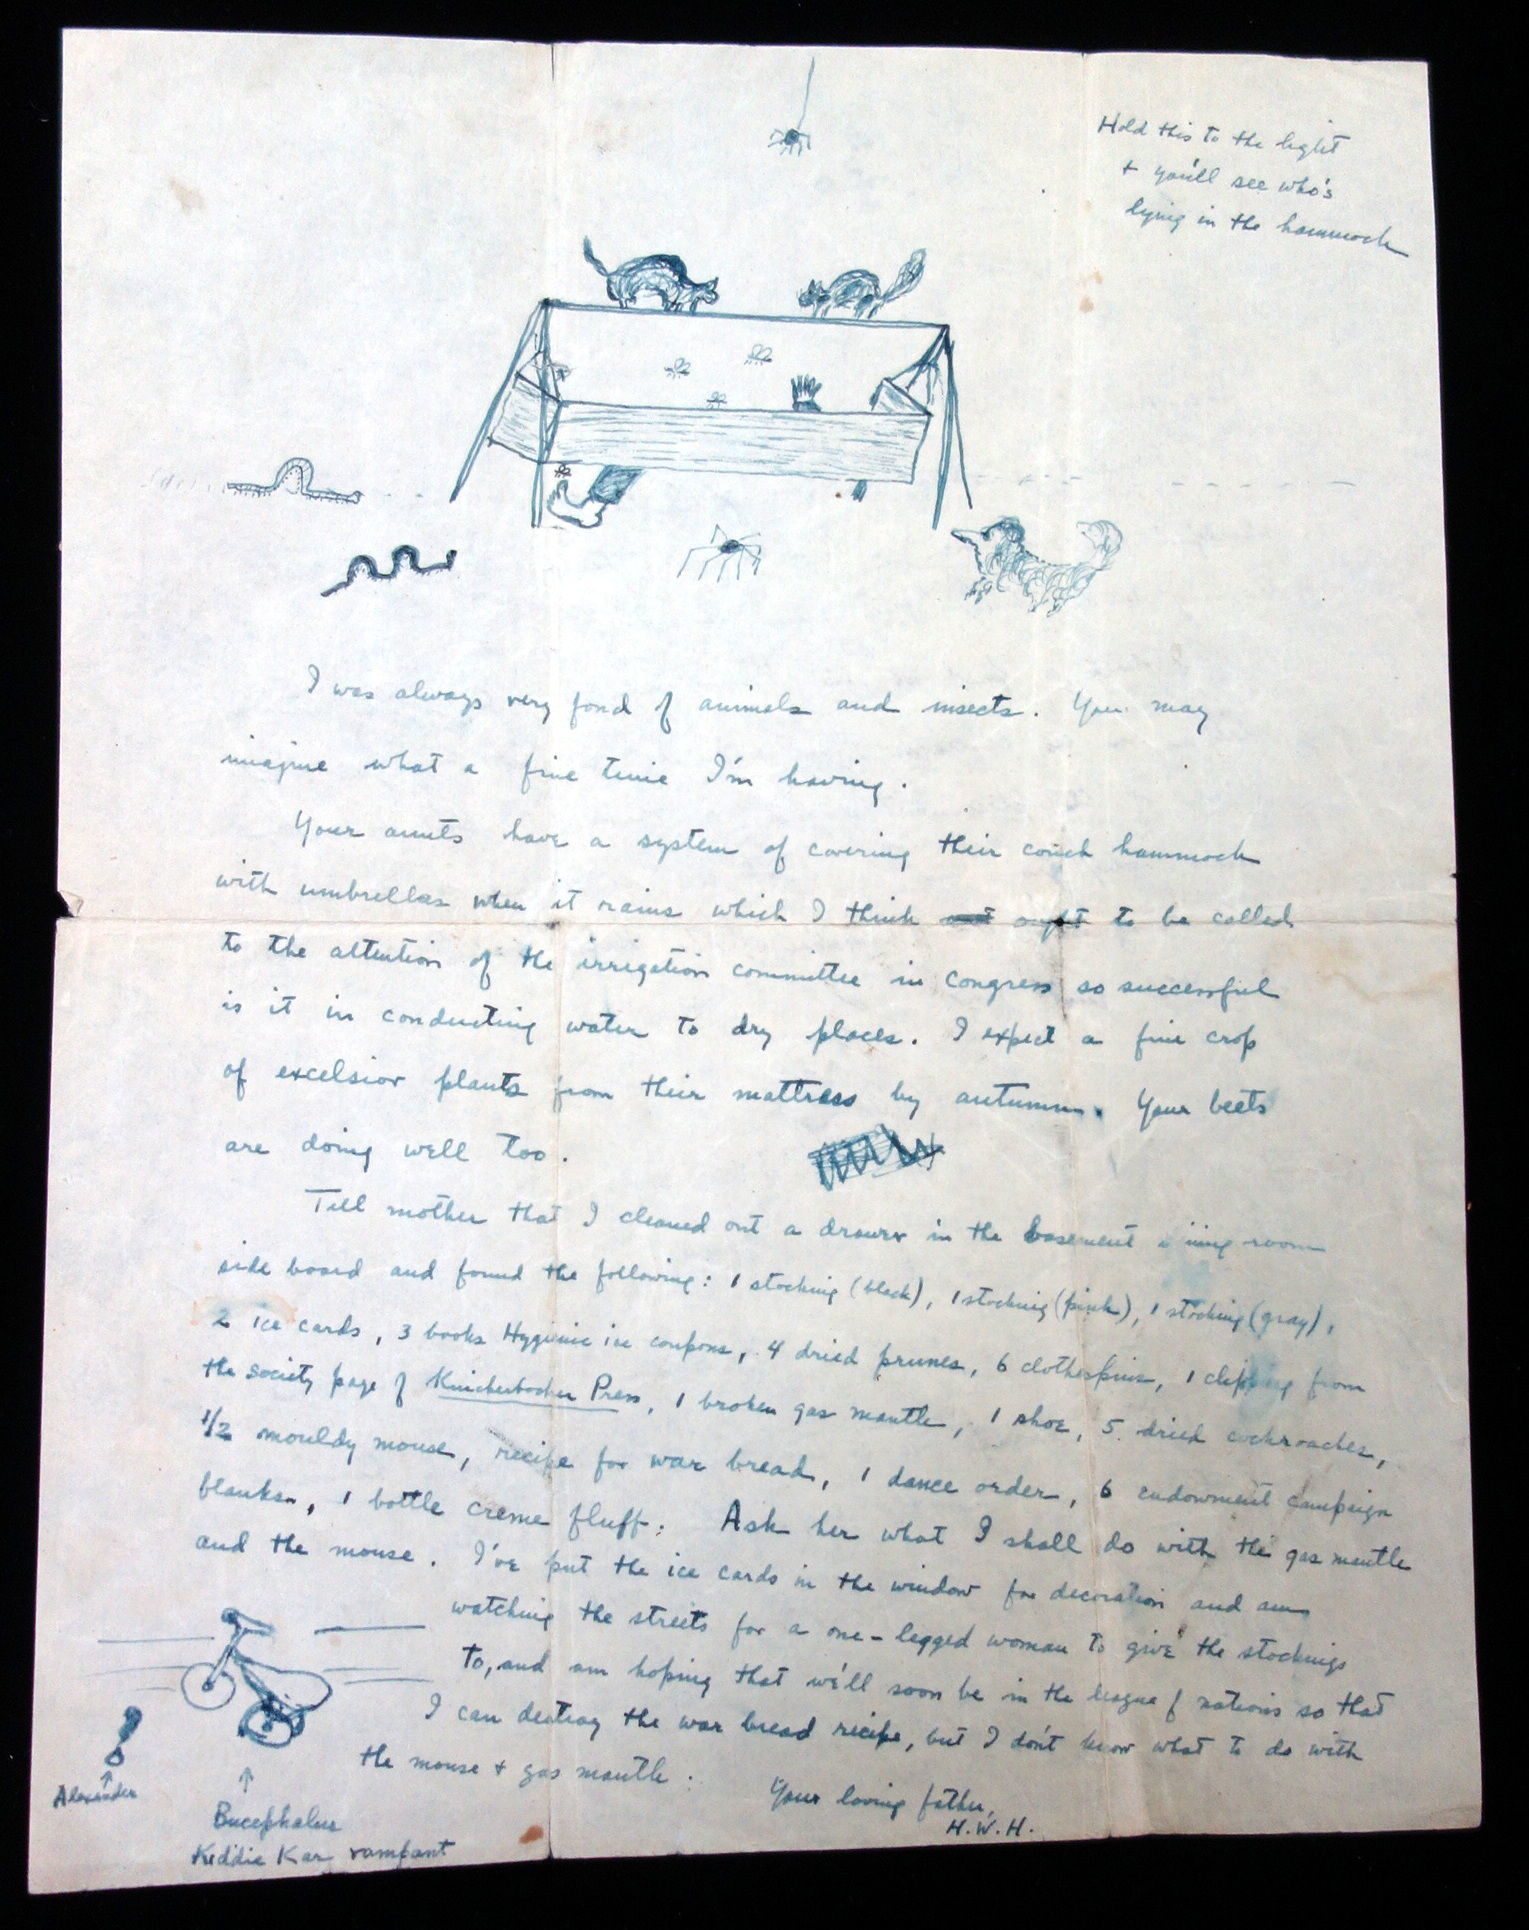 Hold this to the light
+ you'll see who's
lying in the hammock
I was always very fond of animals and insects. You may
imagine what a fine time I'm having.
Your aunts have a system of covering their couch hammock
with umbrellas when it rains which I think ought to be called
to the attention of the irrigation committee in congress so successful
is it in conducting water to dry places. I expect a fine crop
of excelsior plants from their mattress by autumn. Your beets
are doing well too.
Tell mother that I cleaned out a drawer in the basement room
side board and found the following: 1 stocking (black), 1 stocking (pink), 1 stocking (gray),
2 ice cards, 3 books Hygienic ice coupons, 4 dried prunes, 6 clothespins, 1 clipping from
the society page of Knickerbocker Press, 1 broken gas mantle, 1 shoe, 5 dried cockroaches,
1/2 mouldy mouse, recipe for war bread, 1 dance order, 6 endowment campaign
blanks, 1 bottle creme fluff. Ask her what I shall do with the gas mantle
and the mouse. I've put the ice cards in the window for decoration and am
watching the streets for a one-legged woman to give the stockings
to, and am hoping that we'll soon be in the league of nations so that
I can destroy the war bread recipe, but I don't know what to do with
the mouse + gas mantle.
Your loving father,
H.W.H.
Alexander
Bucephalus
Kiddie Kar rampant